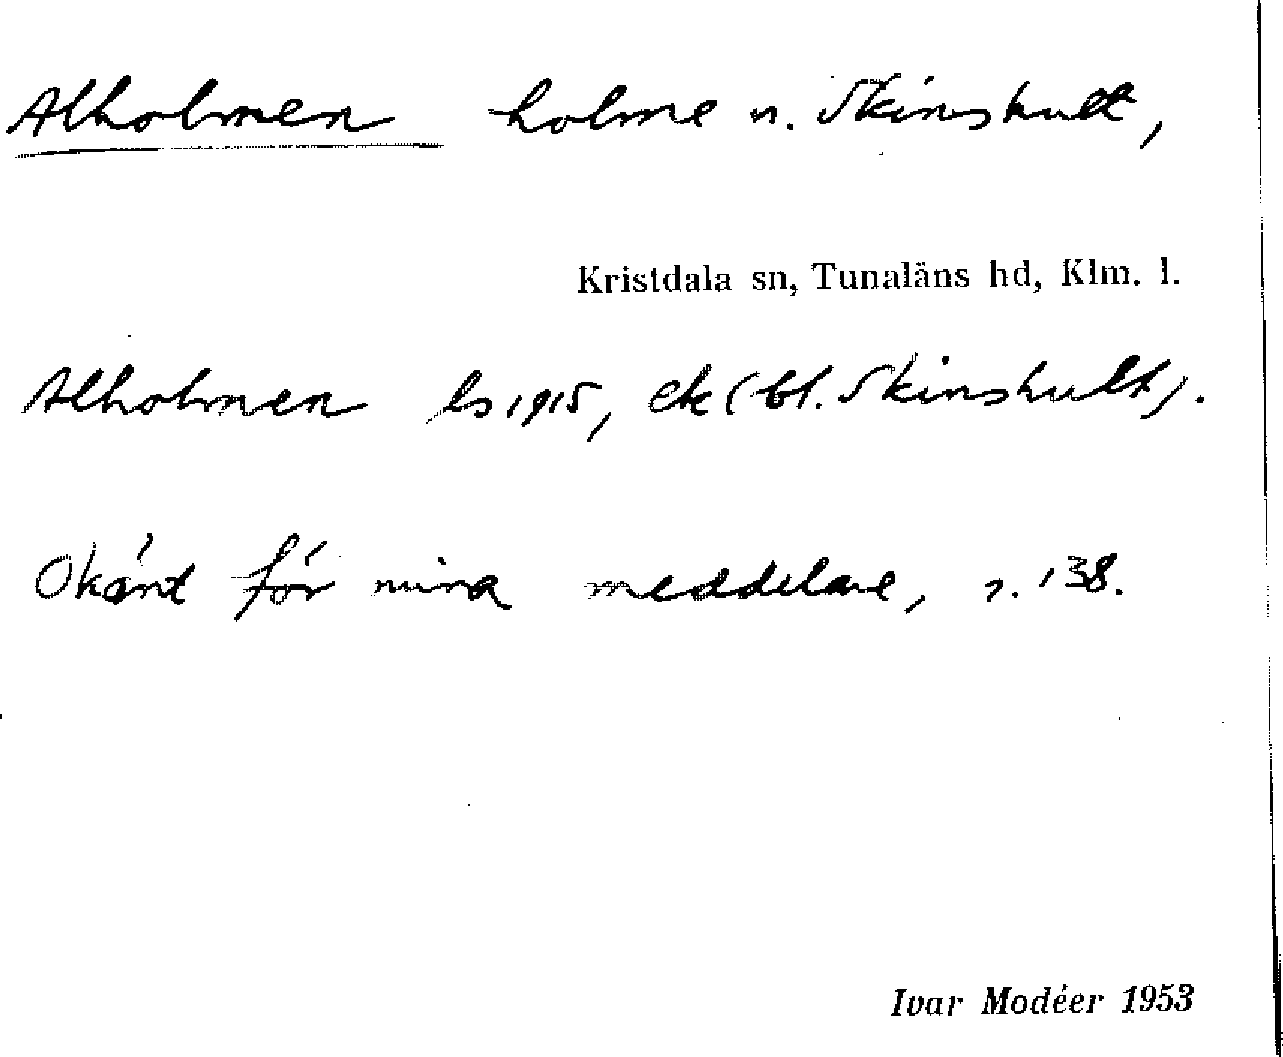 Alholmen holme n. Skinshult,
Kristdala sn, Tunaläns hd, Klm. l.
Alholmen ls 1915, ek (bl. Skinshult).
Okänt för mina meddelare, s. 138.
Ivar Modéer 1953